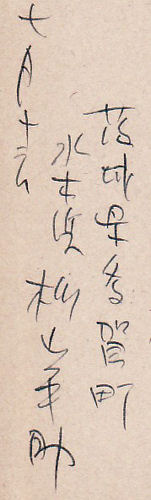 茨城県多賀町
水木浜 松山半助
七月十六